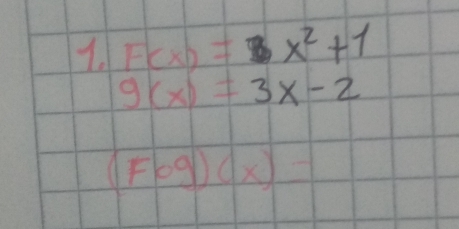 1. F(x) = x² + 1
g(x) = 3x - 2
(Fog)(x) =